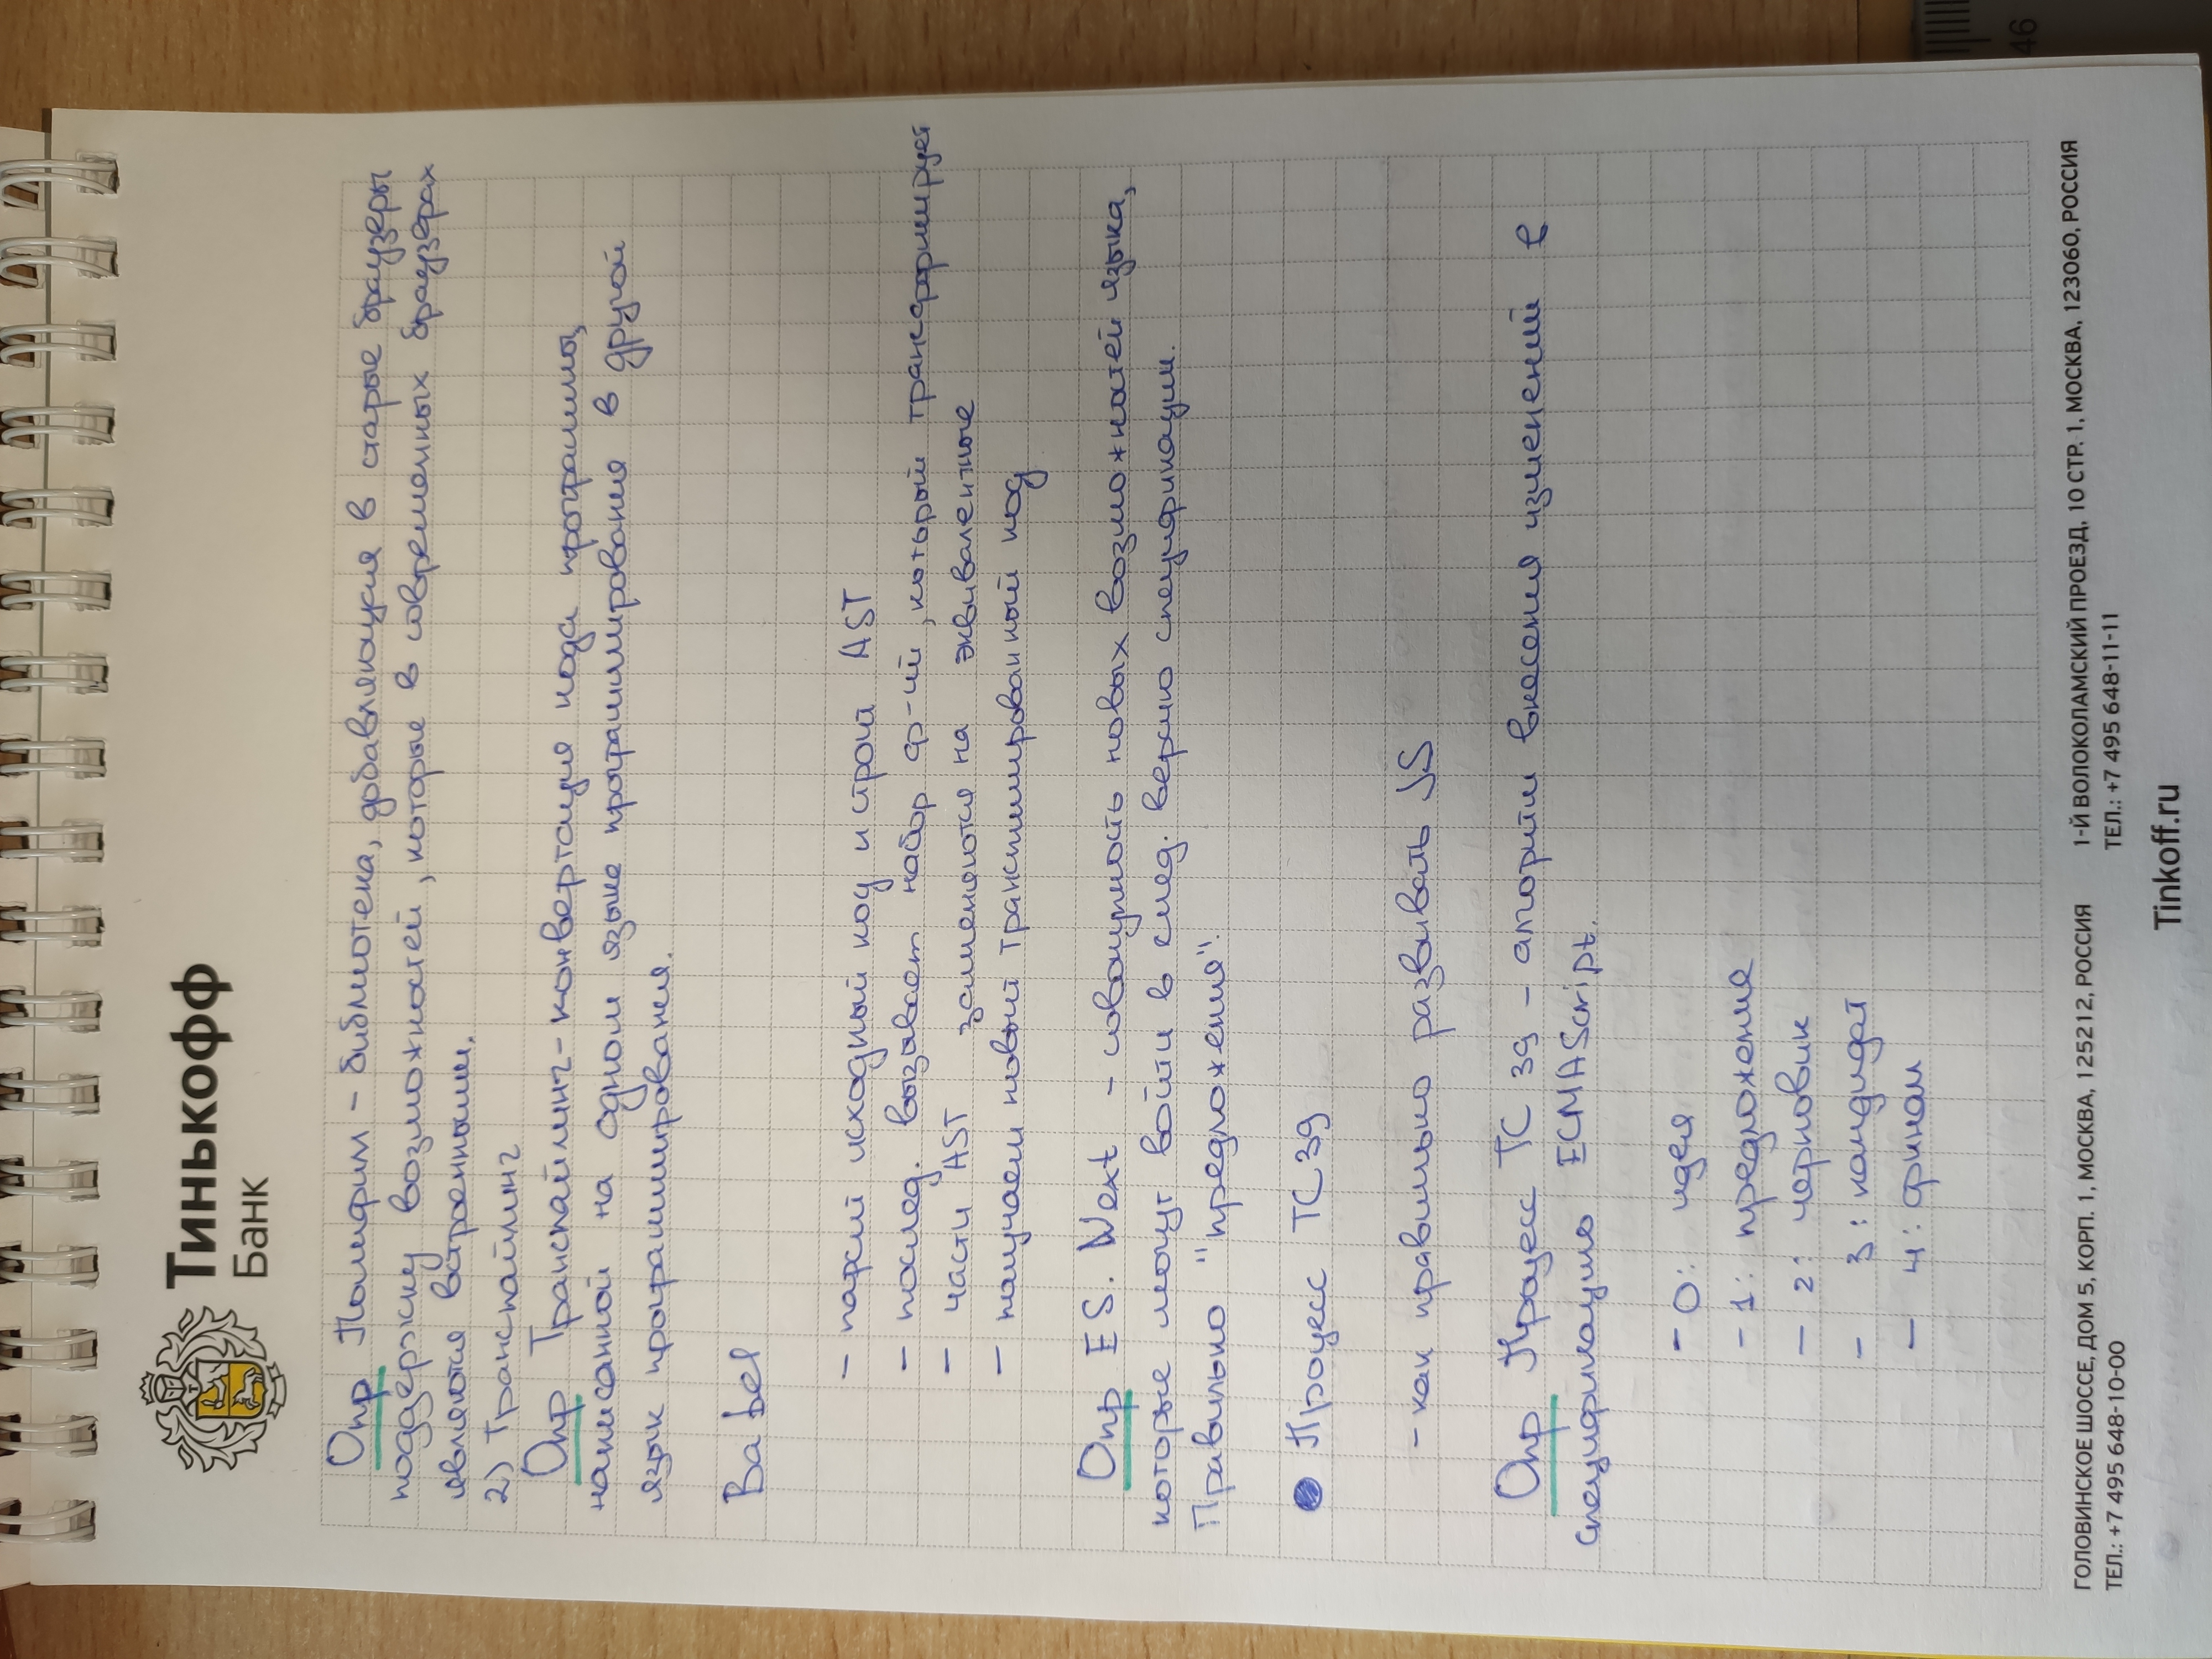 Тинькофф
Банк
Опр Полифил – библиотека, добавляющая в старые браузеры
поддержку возможностей, которые в современных браузерах
являются встроенными.
2) Транспайлинг
Опр Транспайлинг – конвертация кода программы,
написанной на одном языке программирования в другой
язык программирования.
Babel
– парсит исходный код и строит AST
– послед. вызывает набор ф-ий, который трансформирует
– части AST заменяются на эквивалентные
– получаем новый транспилированный код
Опр ES.Next – совокупность новых возможностей языка,
которые могут войти в след. версию спецификации.
Правильно "предложения".
● Процесс TC39
– как правильно развивать JS
Опр Процесс TC 39 – алгоритм внесения изменений в
спецификацию ECMAScript.
– 0: идея
– 1: предложение
– 2: черновик
– 3: кандидат
– 4: финал
ГОЛОВИНСКОЕ ШОССЕ, ДОМ 5, КОРП. 1, МОСКВА, 125212, РОССИЯ
ТЕЛ.: +7 495 648-10-00
1-Й ВОЛОКОЛАМСКИЙ ПРОЕЗД, 10 СТР. 1, МОСКВА, 123060, РОССИЯ
ТЕЛ.: +7 495 648-11-11
Tinkoff.ru
46